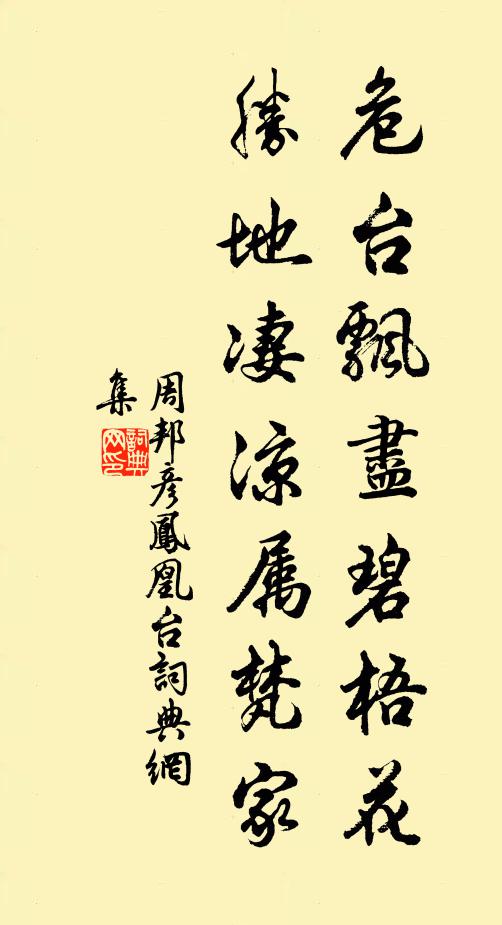 危台飄盡碧梧花
勝地凄凉属梵家
周邦彦鳳凰台詞典網
集
詞典
网印